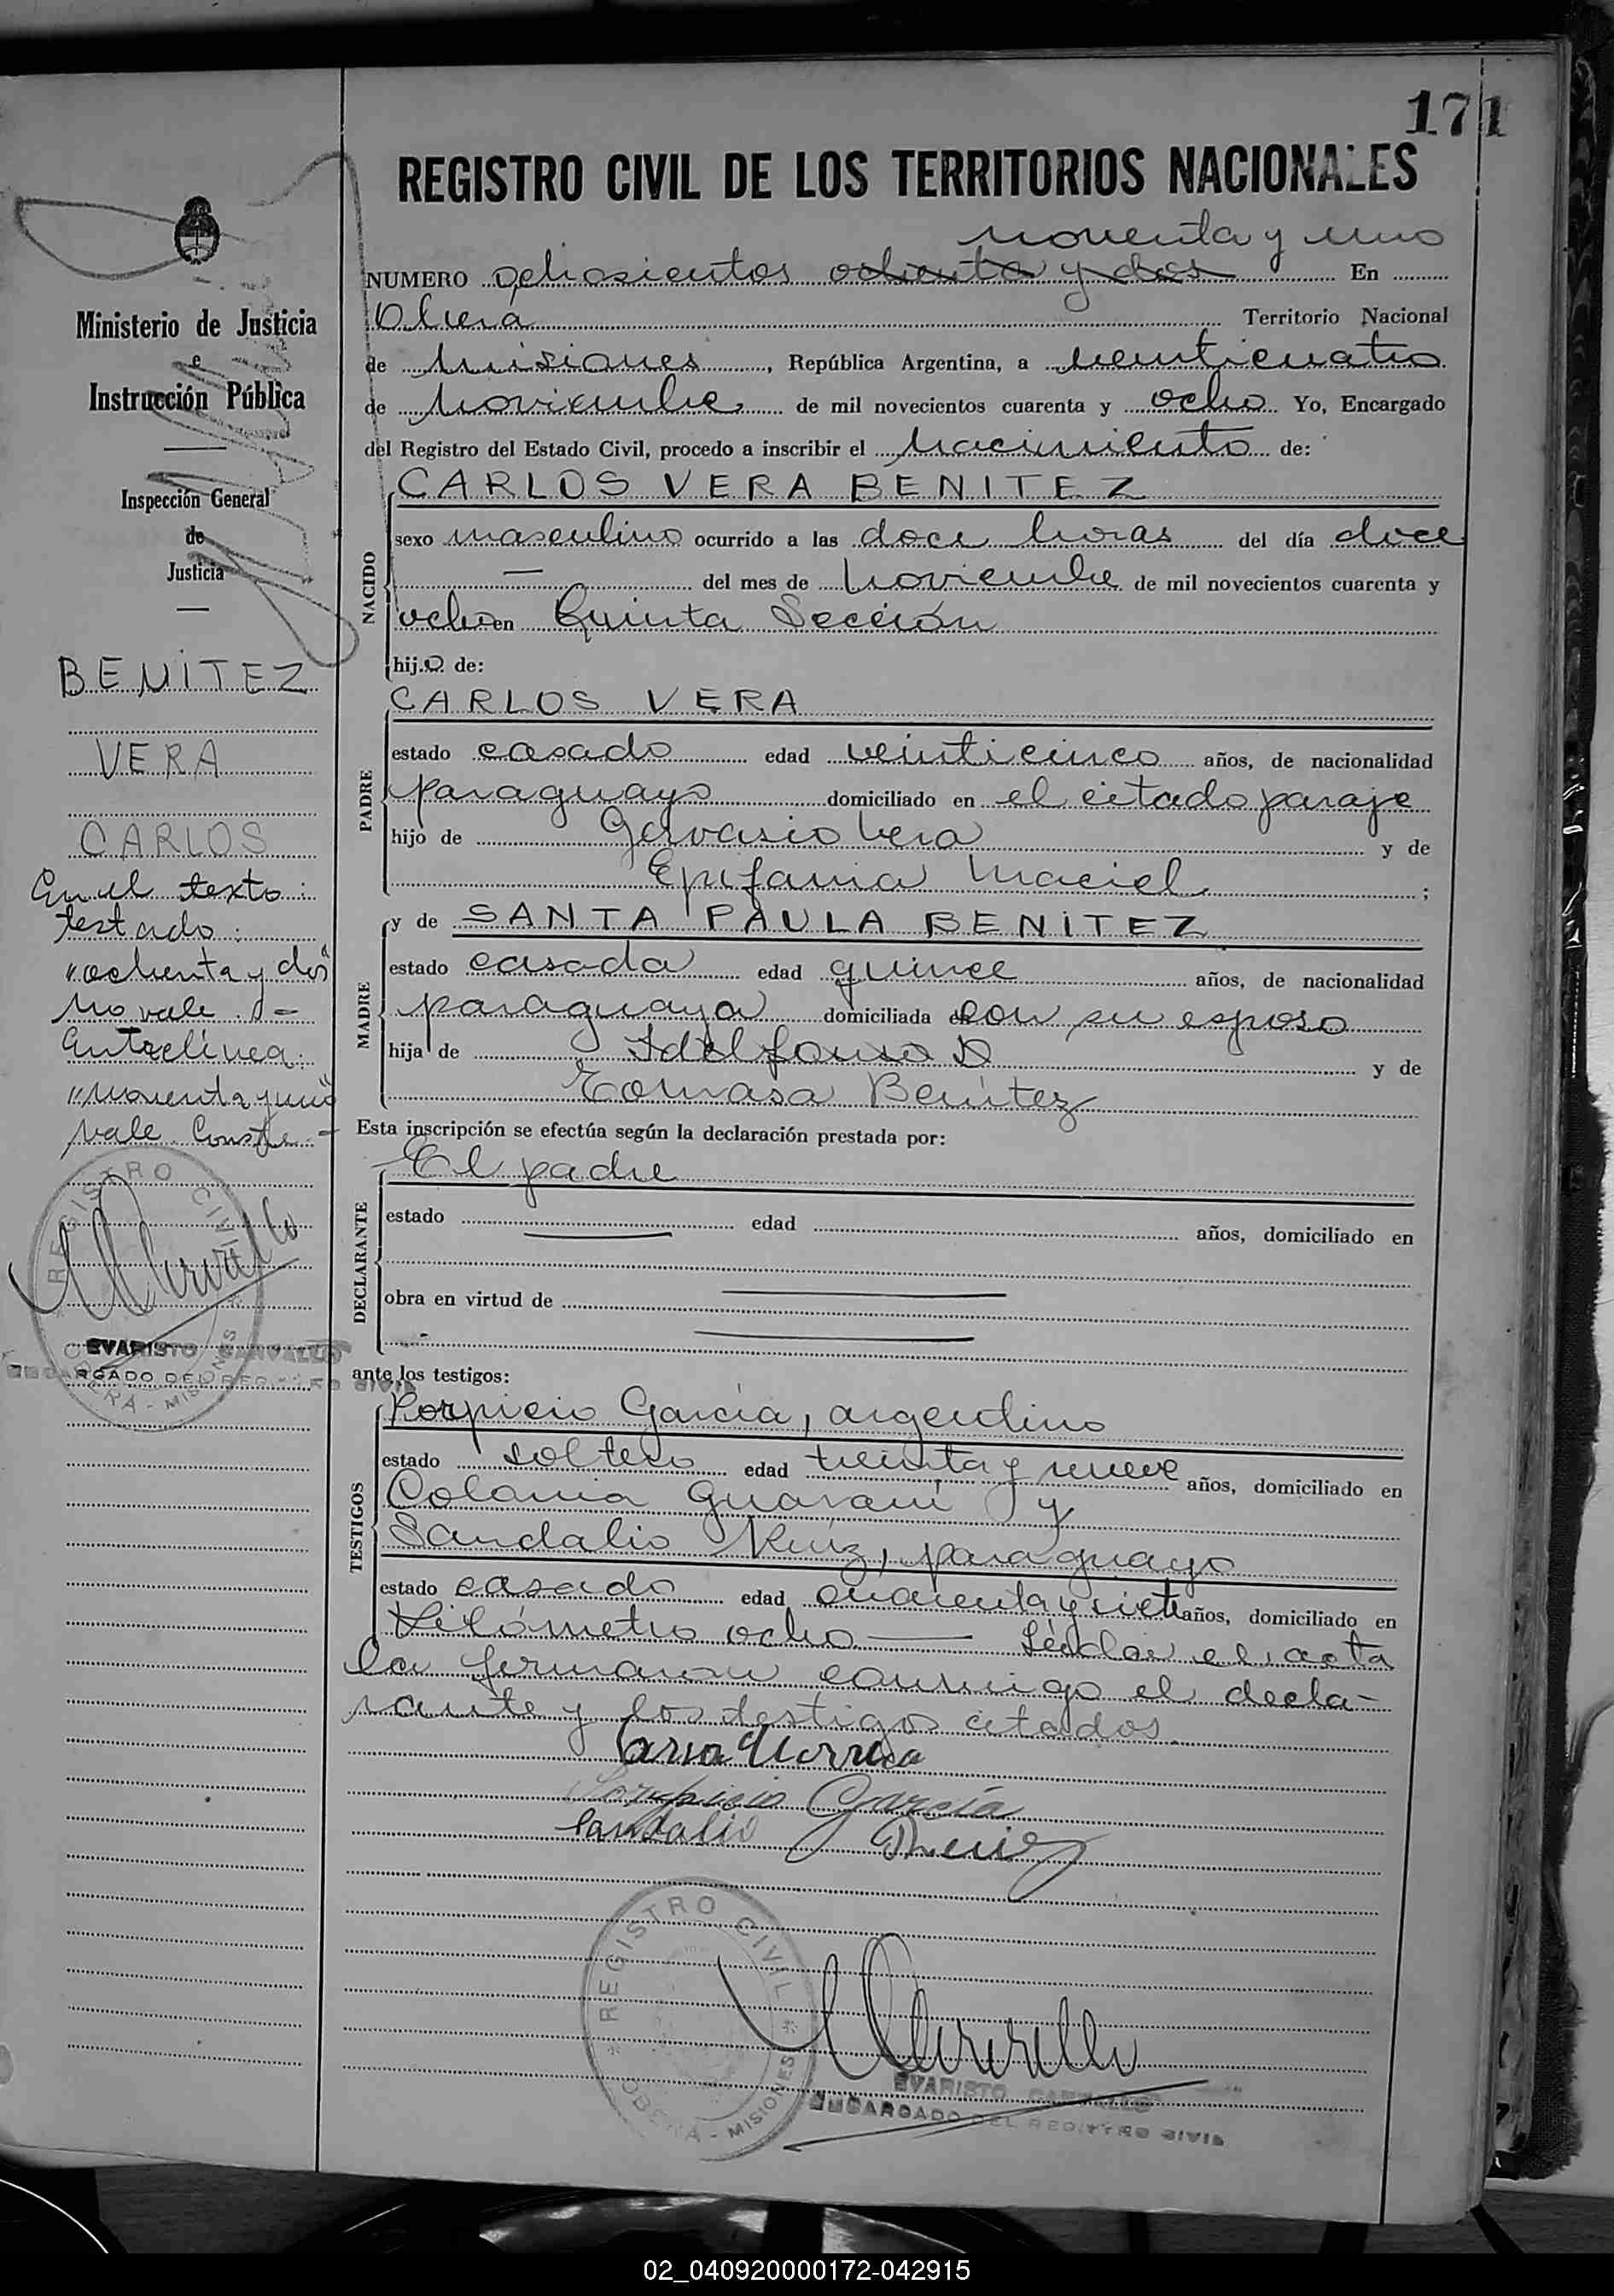 171
REGISTRO CIVIL DE LOS TERRITORIOS NACIONALES
noventa y uno
NUMERO ochosientos ochenta y dos En
Oberá Territorio Nacional
de Misiones, República Argentina, a veinticuatro
de Noviembre de mil novecientos cuarenta y ocho Yo, Encargado
del Registro del Estado Civil, procedo a inscribir el Nacimiento de:
NACIDO
CARLOS VERA BENITEZ
sexo masculino ocurrido a las doce horas del día doce
— del mes de Noviembre de mil novecientos cuarenta y
ocho en Quinta Sección
hijo de:
PADRE
CARLOS VERA
estado casado edad veinticinco años, de nacionalidad
paraguayo domiciliado en el citado paraje
hijo de Gervasio Vera y de
Epifania Maciel ;
MADRE
y de SANTA PAULA BENITEZ
estado casada edad quince años, de nacionalidad
paraguaya domiciliada en con su esposo
hija de Idelfonso D y de
Tomasa Benítez
Esta inscripción se efectúa según la declaración prestada por:
DECLARANTE
El padre
estado edad años, domiciliado en
obra en virtud de
ante los testigos:
TESTIGOS
García, argentino
estado soltero edad treinta y nueve años, domiciliado en
Colonia Guaraní y
Sandalio Ruiz, paraguayo
estado casado edad cuarenta y siete años, domiciliado en
Kilómetro ocho — Leída el acta
la firmaron conmigo el decla-
rante y los testigos citados.
García
Sandalio Ruiz
REGISTRO CIVIL
OBERA - MISIONES
EVARISTO CARVALLO
ENCARGADO DEL REGISTRO CIVIL
Ministerio de Justicia
e
Instrucción Pública
Inspección General
de
Justicia
BENITEZ
VERA
CARLOS
En el texto:
testado:
"ochenta y dos"
no vale. =
Entrelínea:
"noventa y uno"
vale. Conste. -
REGISTRO CIVIL
OBERA - MISIONES
EVARISTO CARVALLO
ENCARGADO DEL REGISTRO CIVIL
02_040920000172-042915